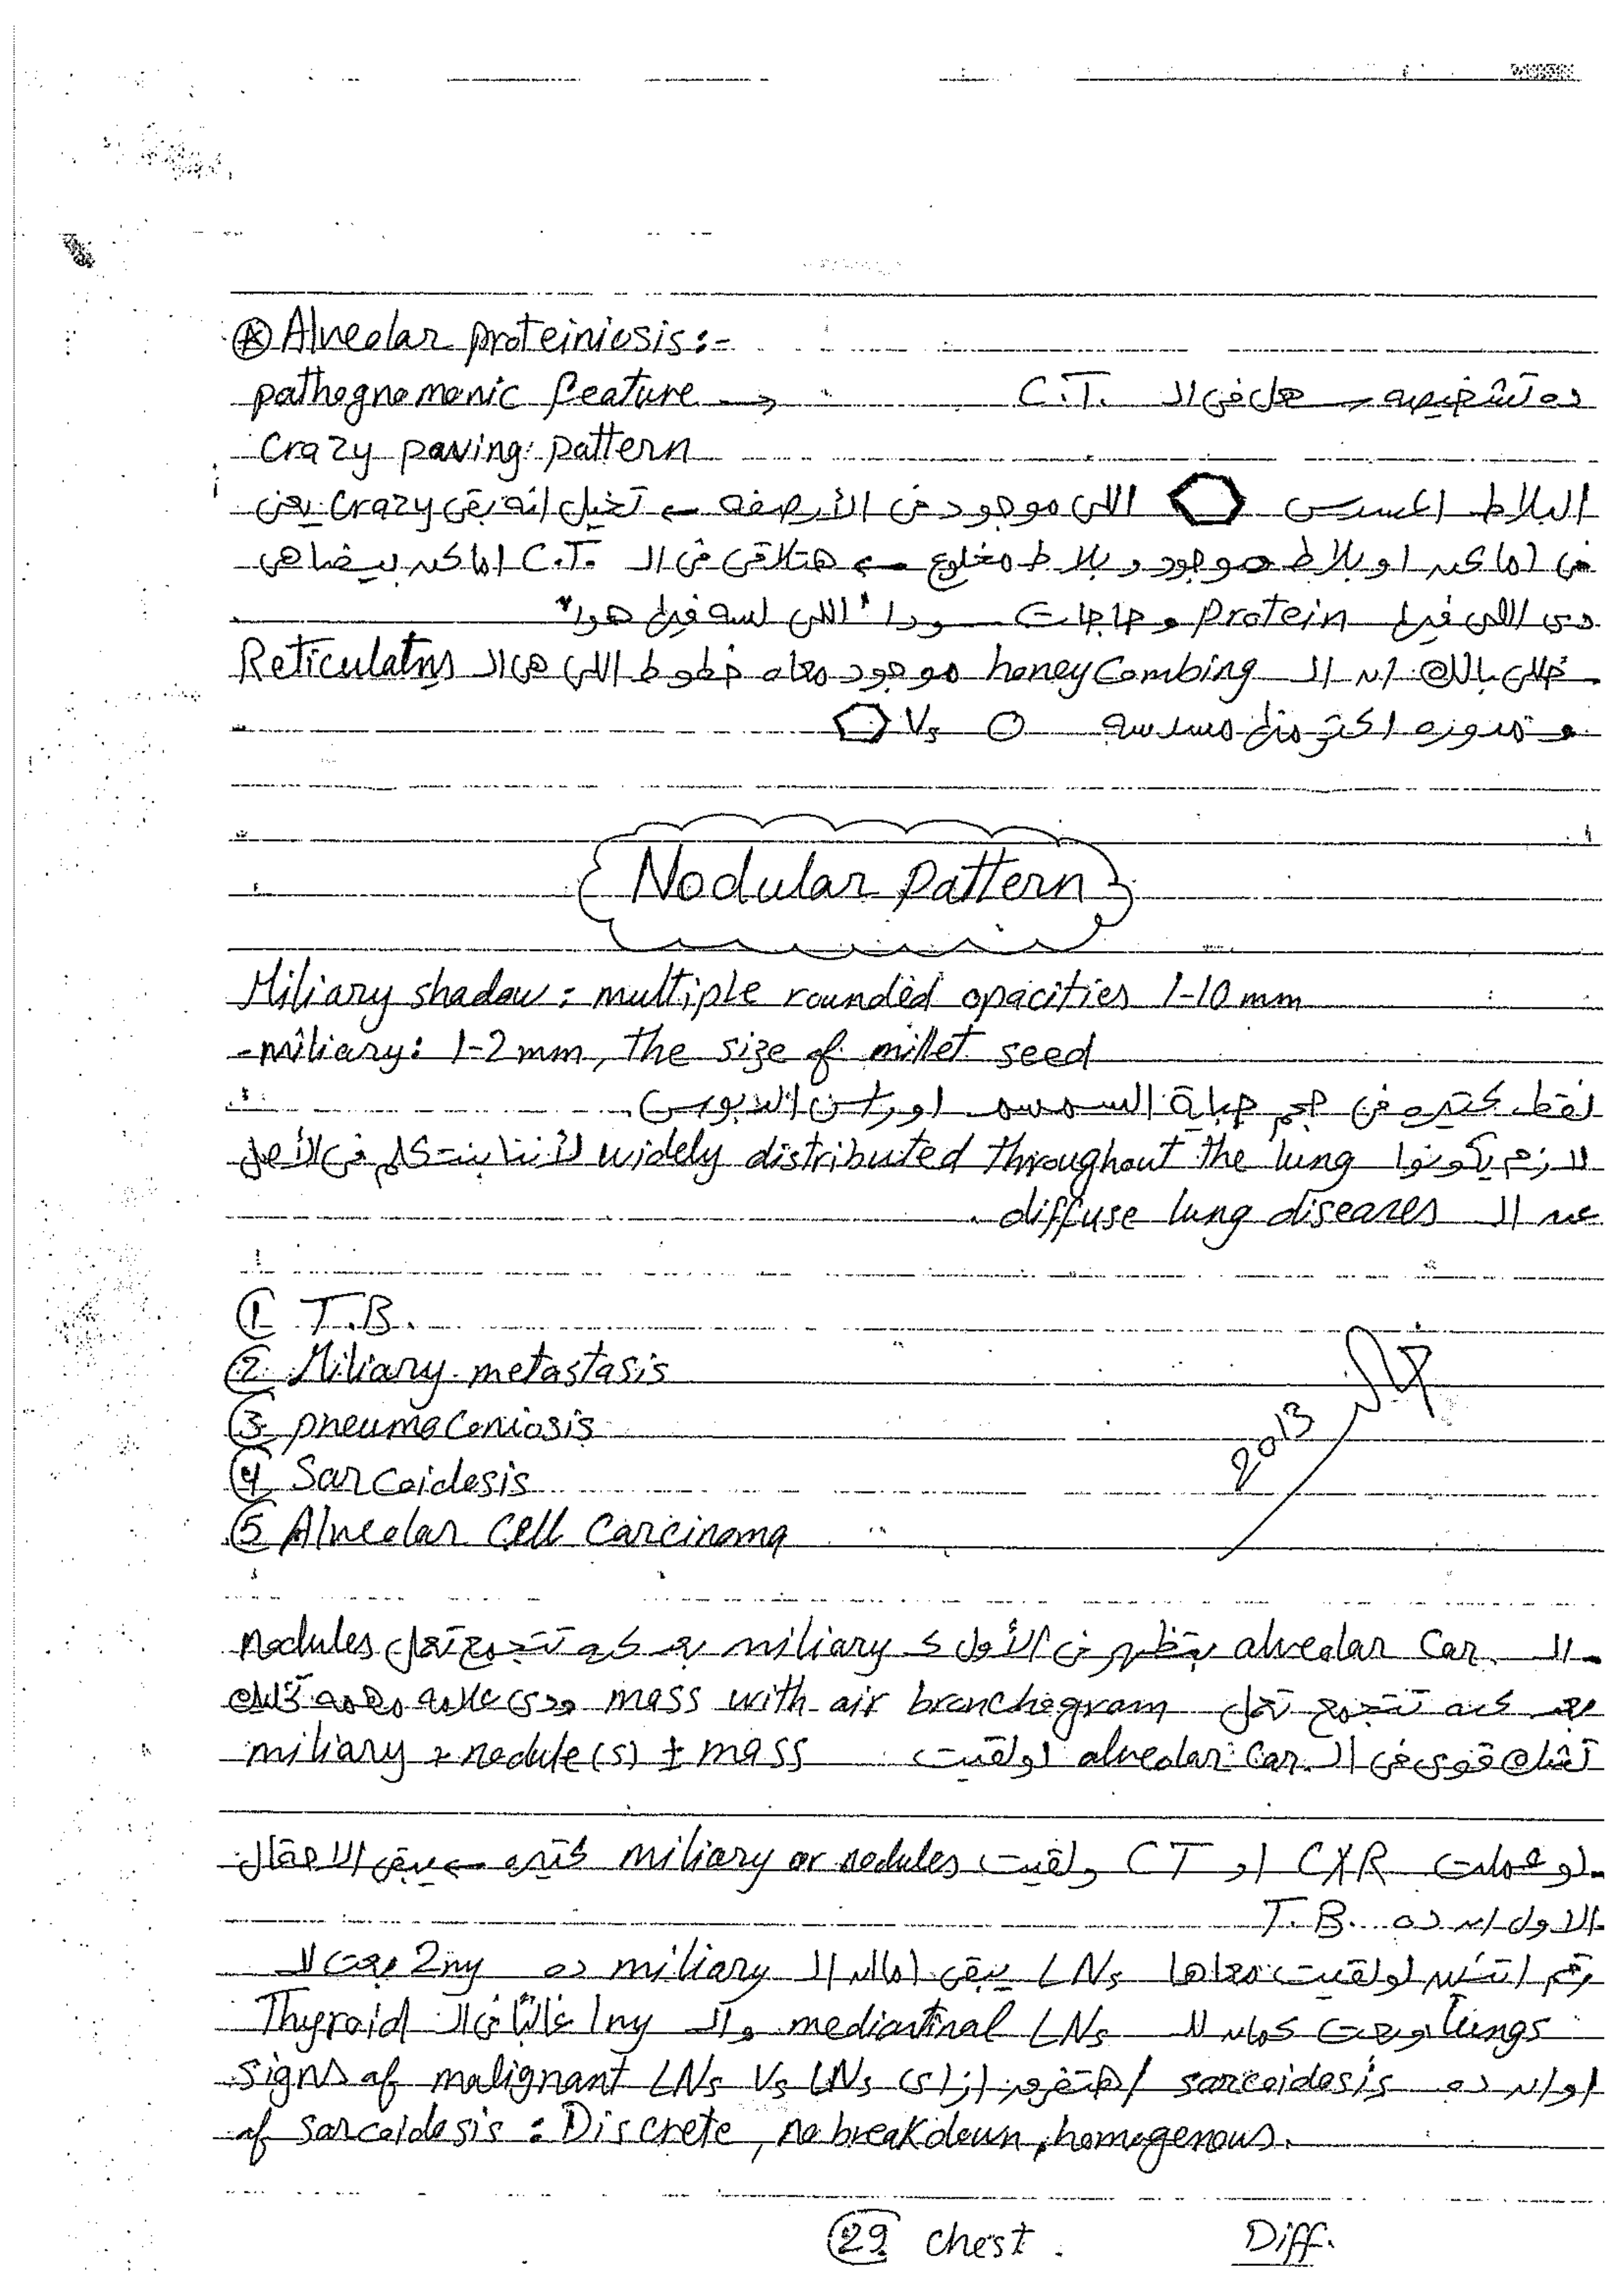 Ⓐ Alveolar proteiniosis:-
pathognomonic feature → ده تشخيصه سهل في ال C.T.
Crazy paving pattern
البلاط المسدس اللى موجود فى الأرصفه ← تخيل انه بقى crazy يعنى
فى اماكن او بلاط موجود و بلاط مخلوع ← هتلاقى فى ال C.T. اماكن بيضا هى
دى اللى فيها protein و حاجات سودا "اللى لسه فيها هوا"
خلى بالك ان ال honey Combing موجود معاه خطوط اللى هى ال Reticulatns
و مدوره اكتر منها مسدسه ○ Vs ⬡
Nodular pattern
Miliary shadow: multiple rounded opacities 1-10 mm
-miliary: 1-2 mm, The size of millet seed
نقط كتيره فى حجم حباية السمسم او راس الدبوس.
لازم يكونوا widely distributed throughout the lung لأننا بنتكلم فى الأصل
عن ال diffuse lung diseases.
① T.B.
② Miliary metastasis
③ pneumoconiosis
④ Sarcoidosis
⑤ Alveolar Cell Carcinoma
2013
- ال alveolar Car. بتظهر فى الأول ك miliary بعد كده تتجمع تعمل nodules
بعد كده تتجمع تعمل mass with air bronchogram ودى علامه مهمه تخليك
تشك قوى فى ال alveolar Car. لو لقيت miliary + nodule(s) ± mass
- لو عملت CXR او CT ولقيت miliary or nodules كتيره ← يبقى الاحتمال
الاول ان ده T.B.
رقم اتنين لو لقيت معاها LNs يبقى اما ان ال miliary ده 2ny بعت لل
lungs وبعت كمان لل mediastinal LNs وال 1ny غالبًا فى ال Thyroid
او ان ده sarcoidosis / هتفرق ازاى signs of malignant LNs Vs LNs
of sarcoidosis: Discrete, no breakdown, homogenous.
㉙ chest. Diff.